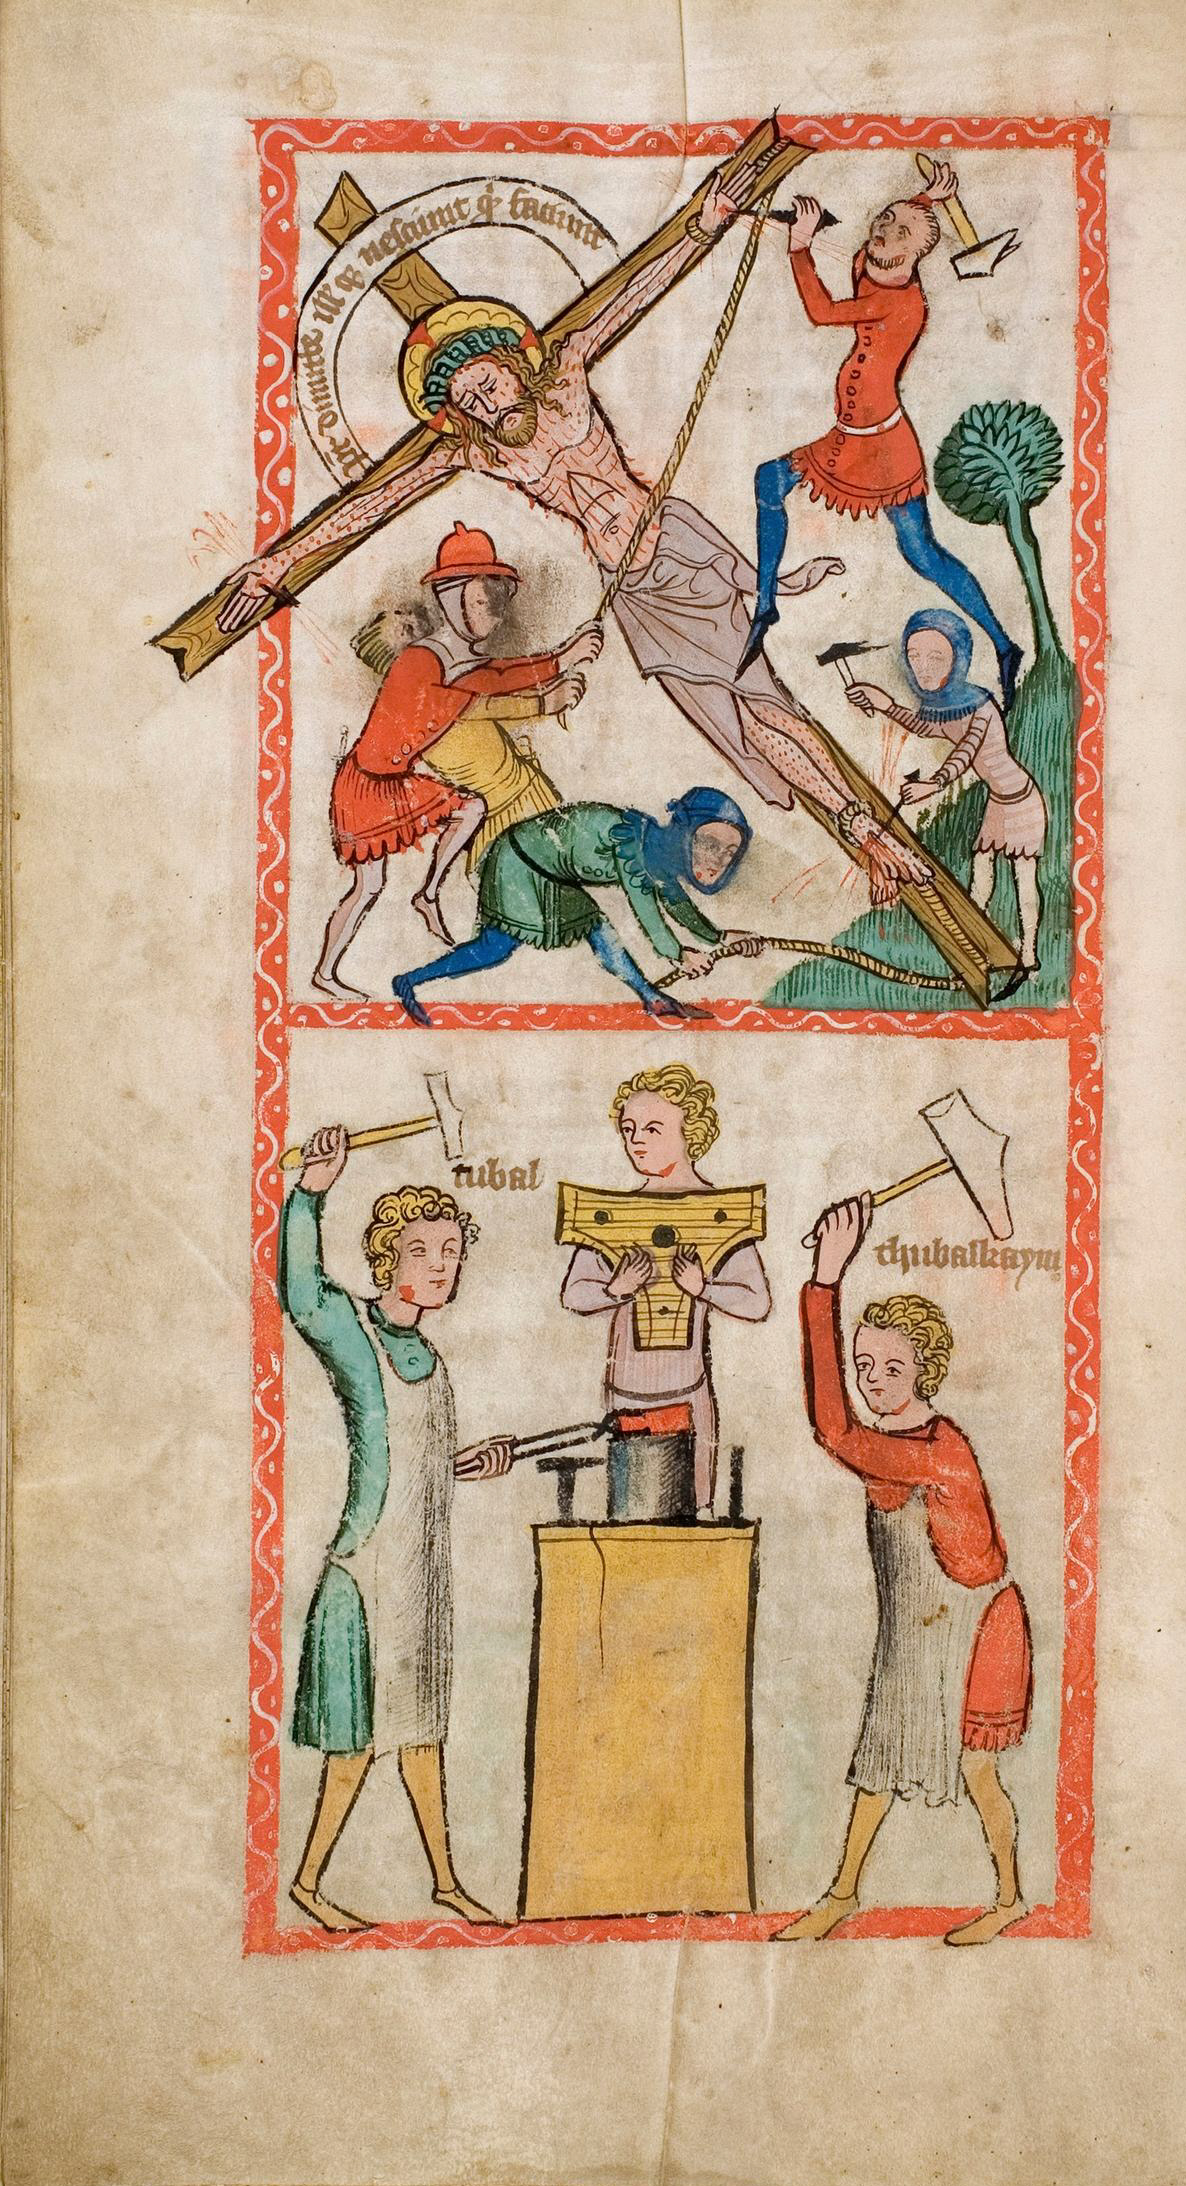 pr dimitte ill' q' nesciunt q' faciunt
tubal
thubalkaym